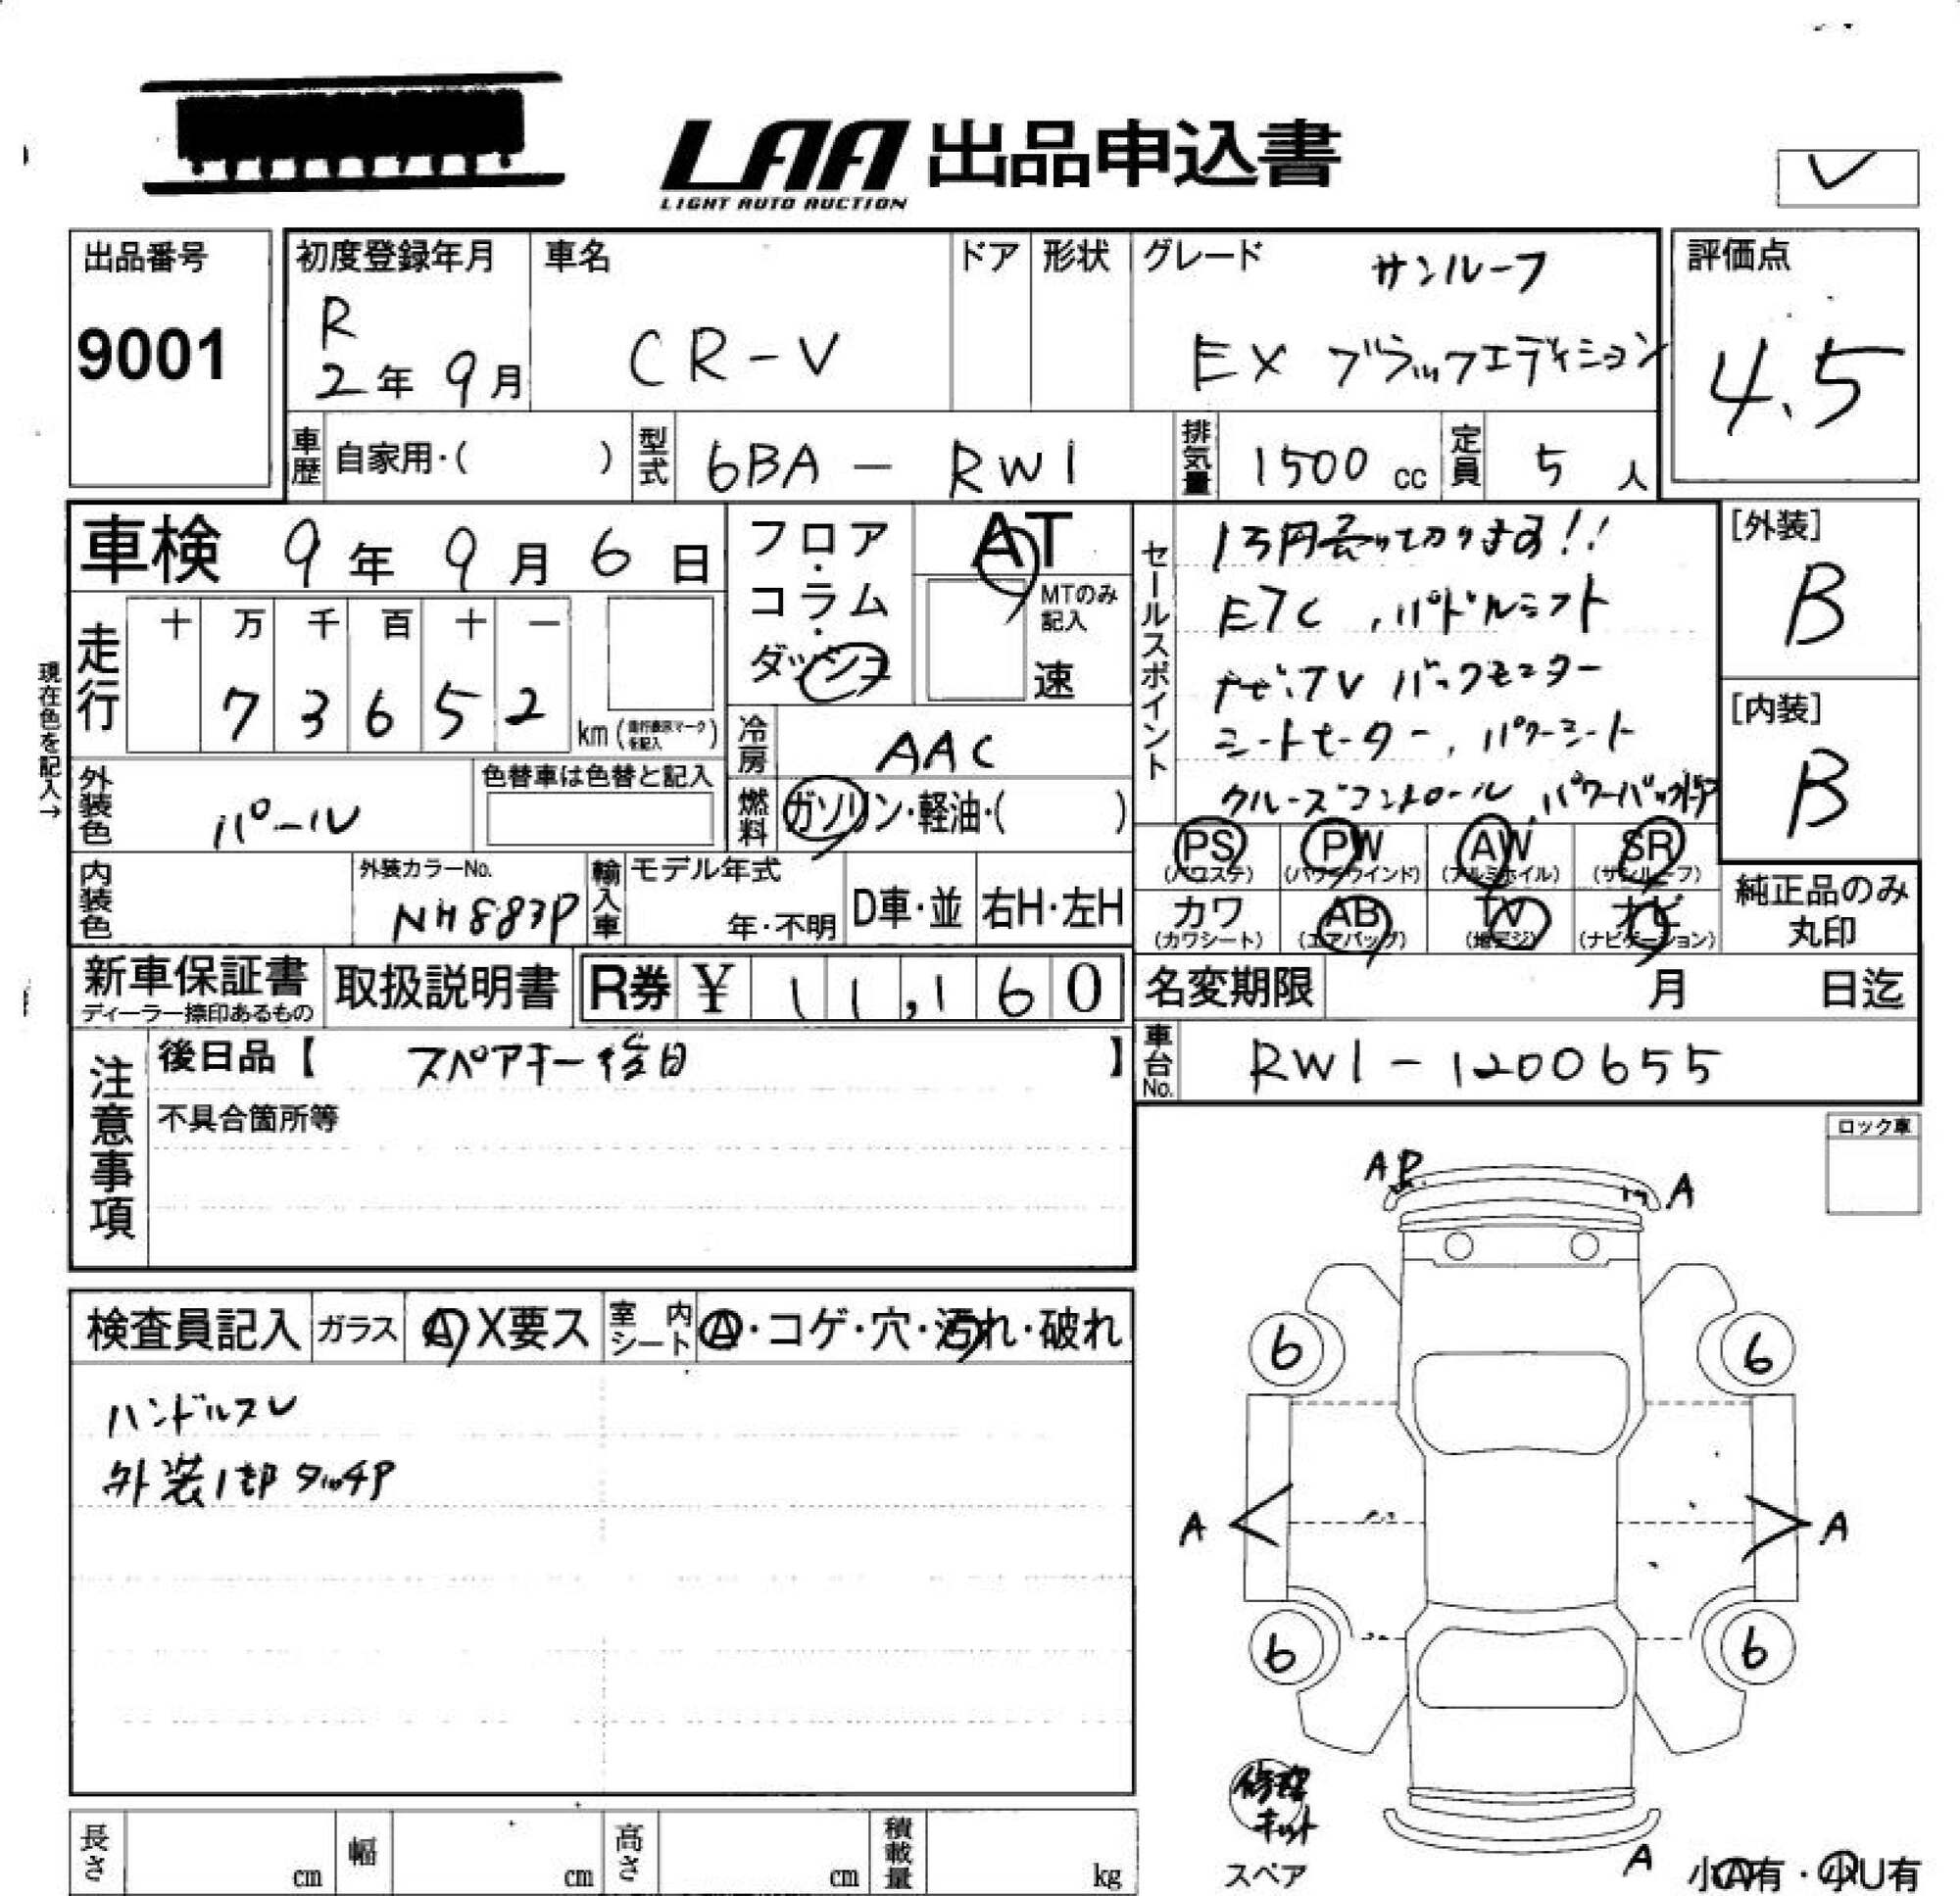 LAA 出品申込書
LIGHT AUTO AUCTION
出品番号
9001
初度登録年月
R
2年 9月
車名
CR-V
ドア
形状
グレード
サンルーフ
EX ブラックエディション
評価点
4.5
車歴 自家用・( )
型式 6BA - RW1
排気量 1500 cc
定員 5 人
車検 9年 9月 6日
走行
十 万 千 百 十 一
7 3 6 5 2
km
現在色を記入→
フロア・コラム・ダッシュ
AT
MTのみ記入
速
冷房 AAC
燃料 ガソリン・軽油・( )
外装色 パール
色替車は色替と記入
内装色
外装カラーNo.
NH883P
輸入車
モデル年式
年・不明
D車・並
右H・左H
セールスポイント
1万円売り切ります!!
ETC , パドルシフト
ナビ.TV バックモニター
シートヒーター, パワーシート
クルーズコントロール, パワーバック付
[外装]
B
[内装]
B
PS PW AW SR
(パワステ) (パワーウインド) (アルミホイル) (サンルーフ)
カワ AB TV ナビ
(カワシート) (エアバッグ) (地デジ) (ナビゲーション)
純正品のみ
丸印
新車保証書
ディーラー捺印あるもの
取扱説明書
R券 ¥ 11,160
名変期限 月 日迄
車台No. RW1-1200655
注意事項
後日品【 スペアキー後日 】
不具合箇所等
ロック車
検査員記入 ガラス A X要ス 室内シート A・コゲ・穴・汚れ・破れ
ハンドルスレ
外装1部タッチP
AP
A
6 6
A A
6 6
修理
キット
スペア
A
小A有・小U有
長さ cm 幅 cm 高さ cm 積載量 kg